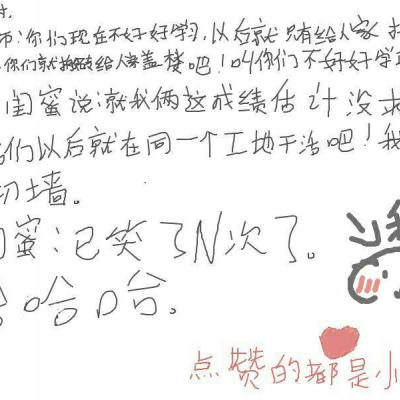 师:你们现在不好好学习,以后就只有给人家
你们就按砖给人家盖楼吧!叫你们不好好学
闺蜜说:就我俩这成绩估计没
们以后就在同一个工地干活吧!我
切墙。
闺蜜:已笑了N次了。
哈哈。
点赞的都是小